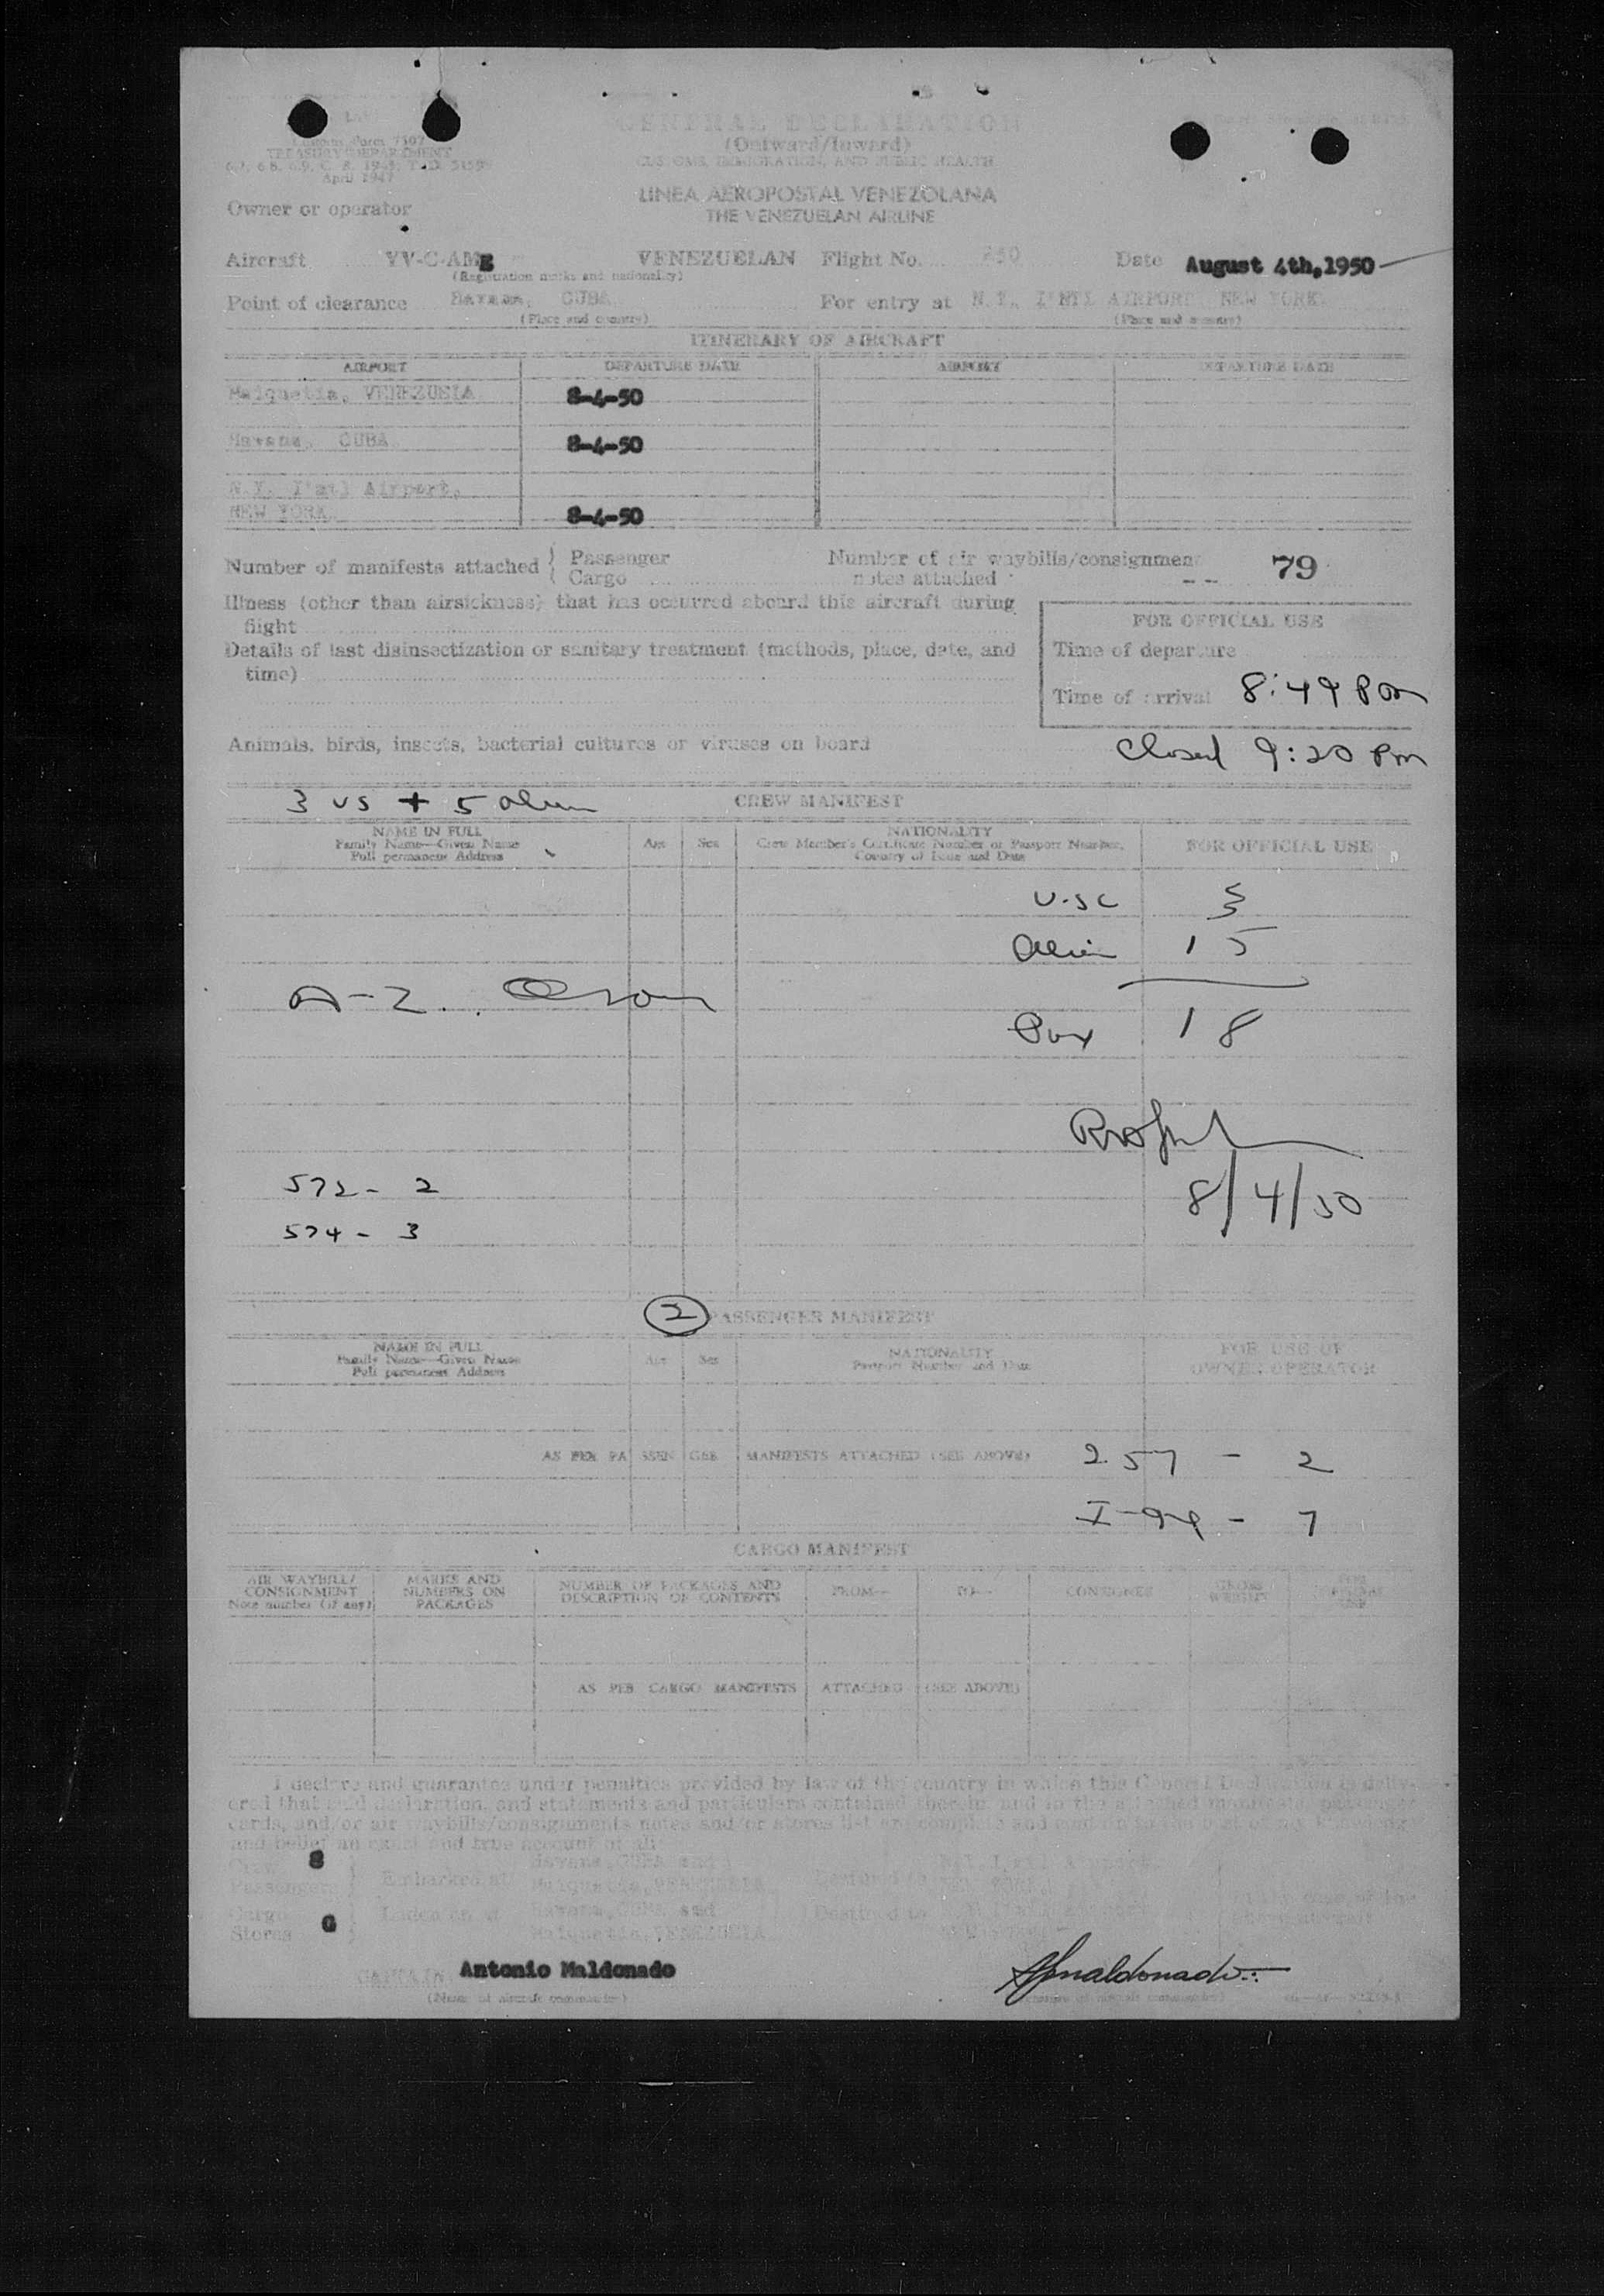 Customs Form 7507
TREASURY DEPARTMENT
April 1947
GENERAL DECLARATION
(Outward/Inward)
CUSTOMS, IMMIGRATION, AND PUBLIC HEALTH
LINEA AEROPOSTAL VENEZOLANA
THE VENEZUELAN AIRLINE
Owner or operator
Aircraft YV-C-AMg VENEZUELAN Flight No. Date August 4th,1950
(Registration marks and nationality)
Point of clearance Havana, CUBA For entry at N.Y. I'NTL AIRPORT NEW YORK
(Place and country) (Place and country)
ITINERARY OF AIRCRAFT
AIRPORT DEPARTURE DATE AIRPORT DEPARTURE DATE
Maiquetia, VENEZUELA 8-4-50
Havana, CUBA 8-4-50
N.Y. I'ntl Airport,
NEW YORK 8-4-50
Number of manifests attached { Passenger Number of air waybills/consignment 79
Cargo notes attached - -
Illness (other than airsickness) that has occurred aboard this aircraft during
flight
FOR OFFICIAL USE
Details of last disinsectization or sanitary treatment (methods, place, date, and
time)
Time of departure
Time of arrival 8:49 Pm
Animals, birds, insects, bacterial cultures or viruses on board
Closed 9:20 Pm
3 US + 5 alien CREW MANIFEST
NAME IN FULL
Family Name—Given Name
Full permanent Address
Age Sex
NATIONALITY
Crew Member's Certificate Number or Passport Number,
Country of Issue and Date
FOR OFFICIAL USE
U.S.C 3
Alien 15
A-2
Pax 18
8/4/50
572 - 2
574 - 3
2 PASSENGER MANIFEST
NAME IN FULL
Family Name—Given Name
Full permanent Address
Age Sex
NATIONALITY
Passport Number and Date
FOR USE OF
OWNER/OPERATOR
AS PER PASSENGER MANIFESTS ATTACHED (SEE ABOVE) 257 - 2
I-94 - 7
CARGO MANIFEST
AIR WAYBILL/
CONSIGNMENT
Note number (if any)
MARKS AND
NUMBERS ON
PACKAGES
NUMBER OF PACKAGES AND
DESCRIPTION OF CONTENTS
FROM— TO— CONSIGNEE
GROSS
WEIGHT
AS PER CARGO MANIFESTS ATTACHED (SEE ABOVE)
I declare and guarantee under penalties provided by law of the country in which this General Declaration is deliv-
ered that said declaration, and statements and particulars contained therein, and in the attached manifests, passenger
cards, and/or air waybills/consignments notes and/or stores list are complete and contain to the best of my knowledge
and belief an exact and true account of all:
Crew 8
Passengers Embarked at Havana, CUBA and Maiquetia, VENEZUELA Destined to
Cargo Laden on at Havana, CUBA and Destined to
Stores G Maiquetia, VENEZUELA
CAPTAIN Antonio Maldonado
(Name of aircraft commander)
AJMaldonado
(Signature of aircraft commander)